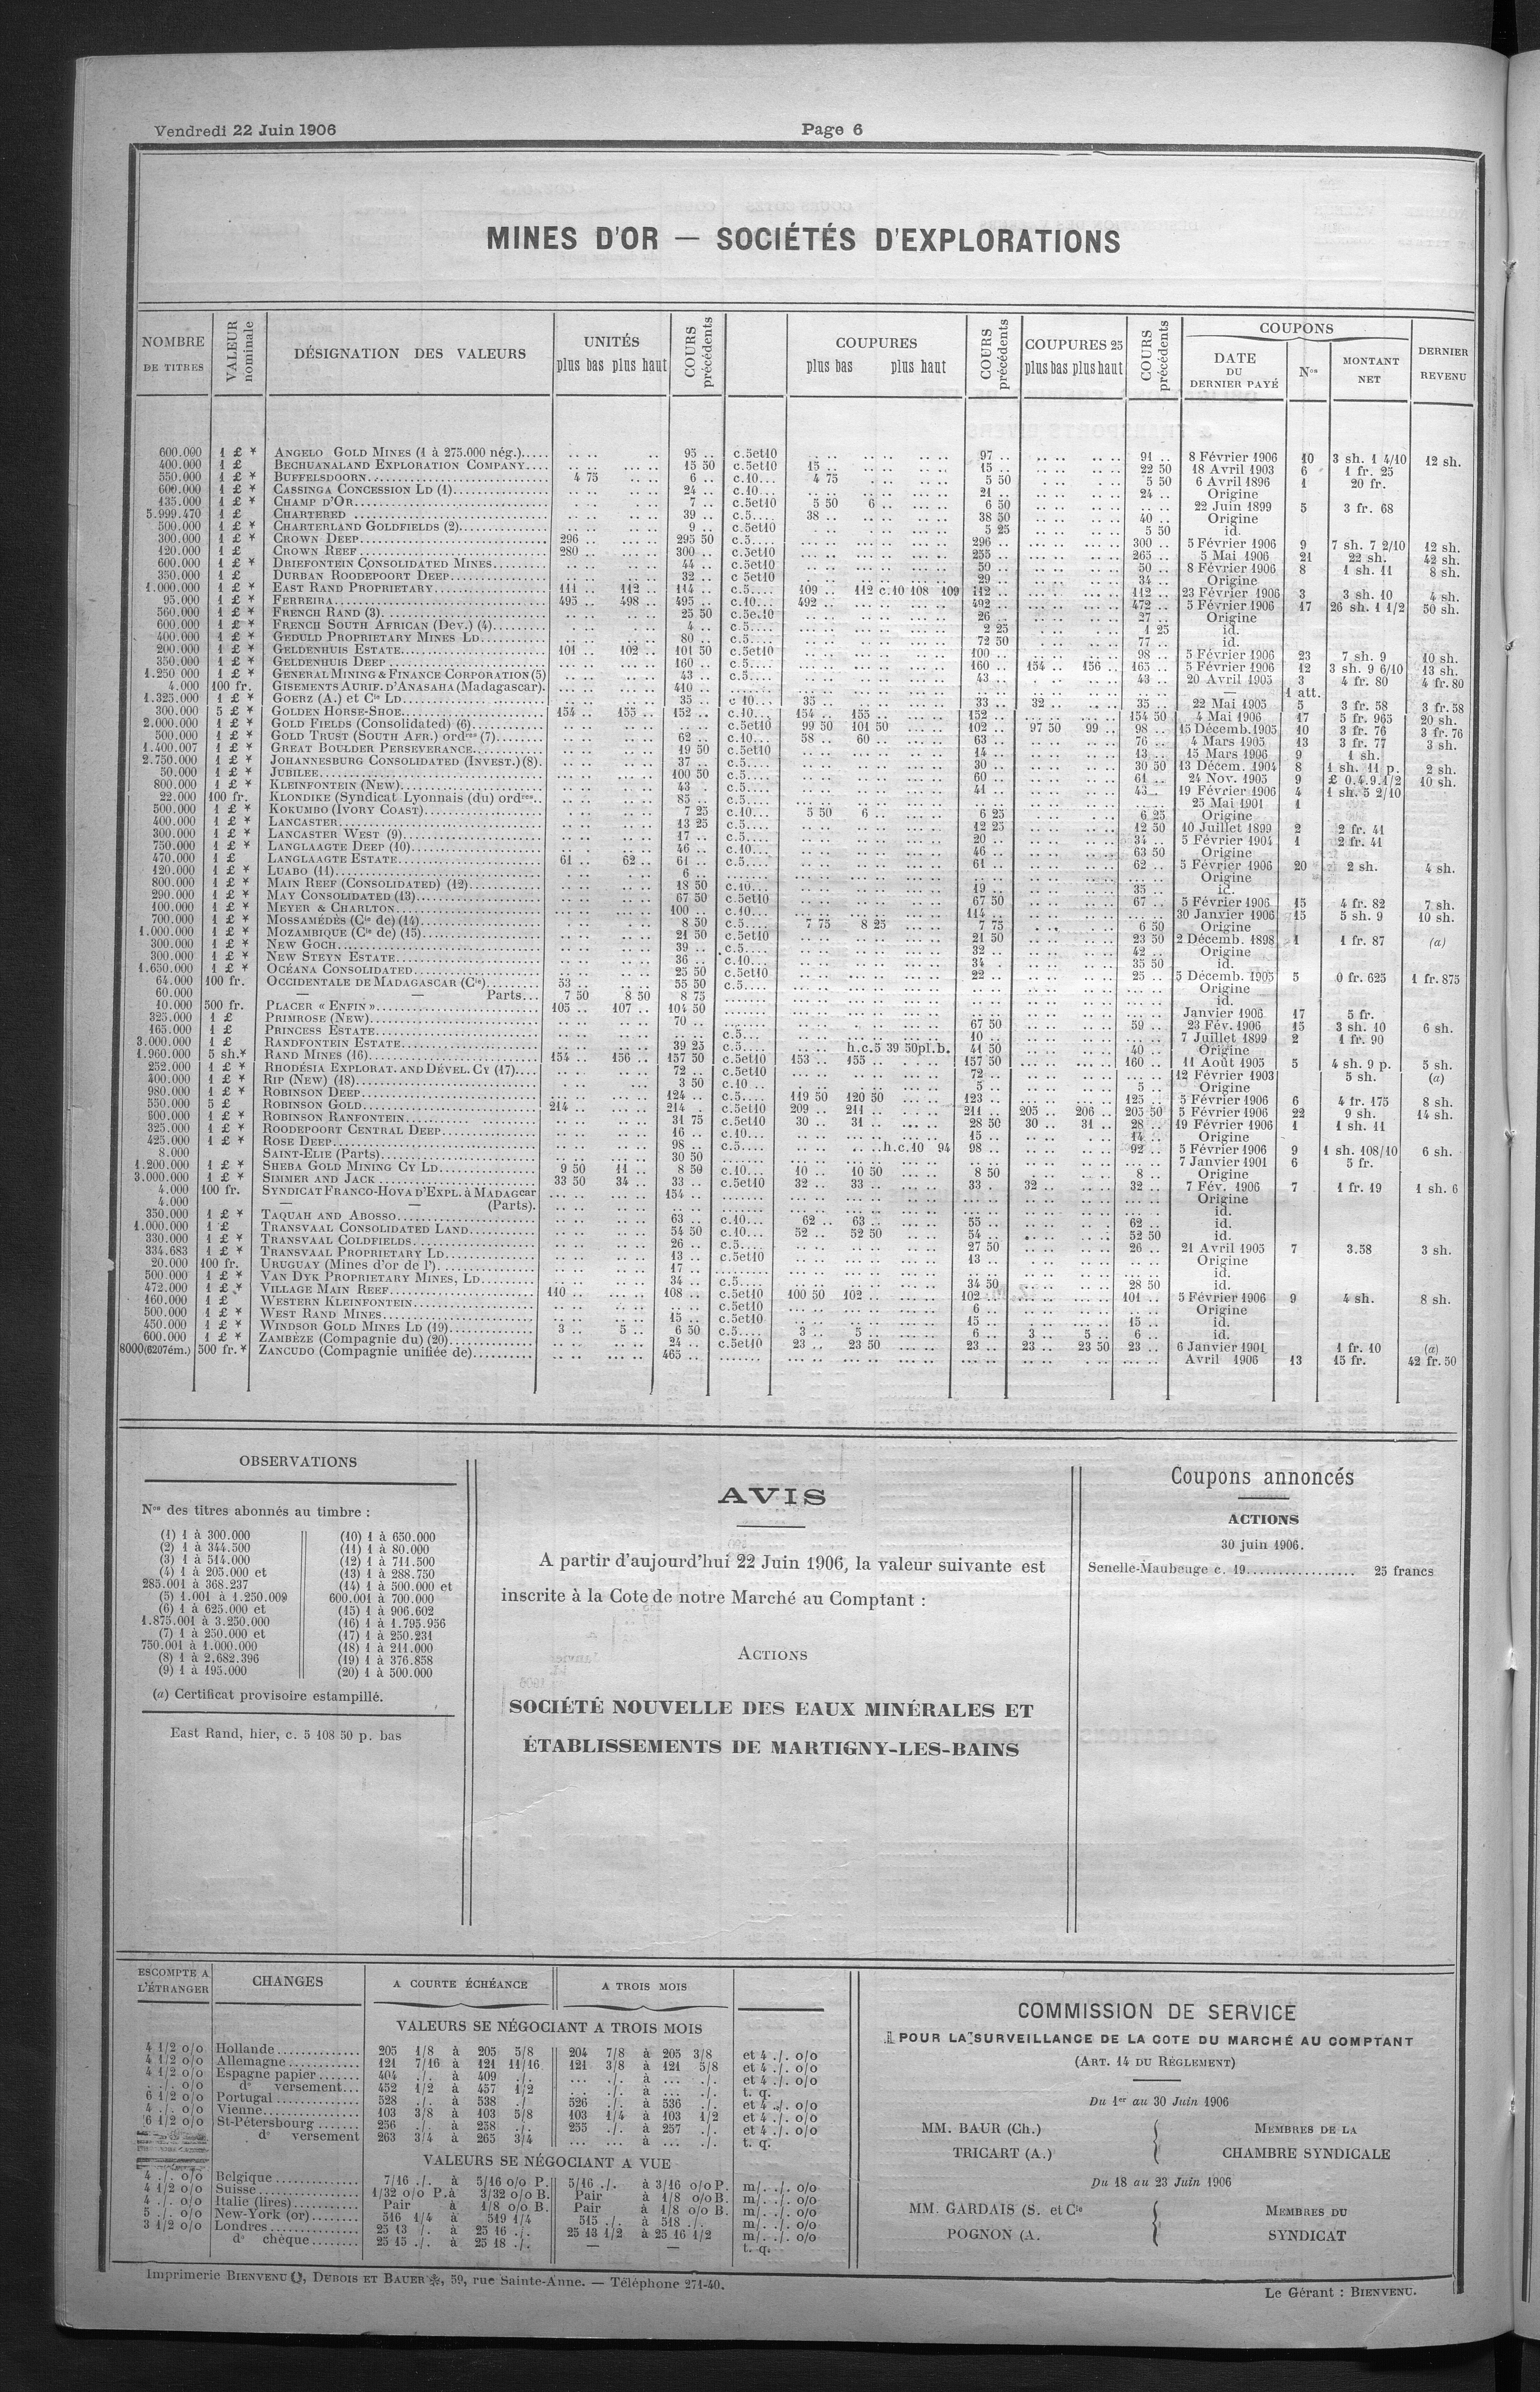 Vendredi 22 Juin 1906
Page 6
MINES D'OR — SOCIÉTÉS D'EXPLORATIONS
NOMBRE DE TITRES | VALEUR nominale | DÉSIGNATION DES VALEURS | UNITÉS plus bas plus haut | COURS précédents | COUPURES plus bas plus haut | COURS précédents | COUPURES 25 plus bas plus haut | COURS précédents | COUPONS DATE DU DERNIER PAYÉ | Nos | MONTANT NET | DERNIER REVENU
600.000 1 £ * ANGELO GOLD MINES (1 à 275.000 nég.)..... 95 .. c.5et10 97 .. 91 .. 8 Février 1906 10 3 sh. 1 4/10 12 sh.
400.000 1 £ BECHUANALAND EXPLORATION COMPANY.... 15 50 c.5et10 15 .. 15 .. 22 50 18 Avril 1903 6 1 fr. 25
550.000 1 £ * BUFFELSDOORN 4 75 6 .. c.10... 4 75 5 50 5 50 6 Avril 1896 1 20 fr.
600.000 1 £ * CASSINGA CONCESSION LD (1) 24 .. c.10... 21 .. 24 .. Origine
135.000 1 £ * CHAMP D'OR 7 .. c.5et10 5 50 6 .. 6 50 22 Juin 1899 5 3 fr. 68
5.999.470 1 £ * CHARTERED 39 .. c.5.... 38 .. 38 50 40 .. Origine
500.000 1 £ * CHARTERLAND GOLDFIELDS (2) 9 .. c.5et10 5 25 5 50 id.
300.000 1 £ * CROWN DEEP 296 .. 295 50 c.5.... 296 .. 300 .. 5 Février 1906 9 7 sh. 7 2/10 12 sh.
120.000 1 £ CROWN REEF 280 .. 300 .. c.5et10 255 .. 265 .. 5 Mai 1906 21 22 sh. 42 sh.
600.000 1 £ * DRIEFONTEIN CONSOLIDATED MINES 44 .. c 5et10 50 .. 50 .. 8 Février 1906 8 1 sh. 11 8 sh.
350.000 1 £ DURBAN ROODEPOORT DEEP 32 .. c 5et10 29 .. 34 .. Origine
1.000.000 1 £ * EAST RAND PROPRIETARY 111 .. 112 .. 114 .. c.5.... 109 .. 112 c.10 108 109 112 .. 112 .. 23 Février 1906 3 3 sh. 10 4 sh.
95.000 1 £ * FERREIRA 495 .. 498 .. 495 .. c.10... 492 .. 492 .. 472 .. 5 Février 1906 17 26 sh. 1 1/2 50 sh.
560.000 1 £ * FRENCH RAND (3) 25 50 c.5et10 26 .. 27 .. Origine
600.000 1 £ * FRENCH SOUTH AFRICAN (Dev.) (4) 4 .. c.5.... 2 25 1 25 id.
400.000 1 £ * GEDULD PROPRIETARY MINES LD 80 .. c.5.... 72 50 77 .. id.
200.000 1 £ * GELDENHUIS ESTATE 101 .. 102 .. 101 50 c.5et10 100 .. 98 .. 5 Février 1906 23 7 sh. 9 10 sh.
350.000 1 £ * GELDENHUIS DEEP 160 .. c.5.... 160 .. 154 .. 156 .. 165 .. 5 Février 1906 12 3 sh. 9 6/10 13 sh.
1.250 000 1 £ * GENERAL MINING & FINANCE CORPORATION (5) 43 .. c.5.... 43 .. 43 .. 20 Avril 1905 3 4 fr. 80 4 fr. 80
4.000 100 fr. GISEMENTS AURIF. D'ANASAHA (Madagascar). 410 .. — 1 att.
1.325.000 1 £ * GOERZ (A.) et Cie LD 35 .. c 10... 35 .. 33 .. 32 .. 35 .. 22 Mai 1905 5 3 fr. 58 3 fr. 58
300.000 5 £ * GOLDEN HORSE-SHOE 154 .. 155 .. 152 .. c.10... 154 .. 155 .. 152 .. 154 50 4 Mai 1906 17 5 fr. 965 20 sh.
2.000.000 1 £ * GOLD FIELDS (Consolidated) (6) c.5et10 99 50 101 50 102 .. 97 50 99 .. 98 .. 15 Décemb. 1905 10 3 fr. 76 3 fr. 76
500.000 1 £ * GOLD TRUST (SOUTH AFR.) ordres (7) 62 .. c.10... 58 .. 60 .. 63 .. 76 .. 4 Mars 1905 13 3 fr. 77 3 sh.
1.400.007 1 £ * GREAT BOULDER PERSEVERANCE 19 50 c.5et10 14 .. 13 .. 15 Mars 1906 9 1 sh.
2.750.000 1 £ * JOHANNESBURG CONSOLIDATED (INVEST.) (8). 37 .. c.5.... 30 .. 30 50 13 Décem. 1904 8 1 sh. 11 p. 2 sh.
50.000 1 £ * JUBILEE 100 50 c.5.... 60 .. 61 .. 24 Nov. 1905 9 £ 0.4.9.1/2 10 sh.
800.000 1 £ * KLEINFONTEIN (New) 43 . c.5.... 41 .. 43 .. 19 Février 1906 4 1 sh. 5 2/10
22.000 100 fr. KLONDIKE (Syndicat Lyonnais (du) ordres.. 85 .. c.5.... 25 Mai 1901 1
500.000 1 £ * KOKUMBO (IVORY COAST) 7 25 c.10... 5 50 6 .. 6 25 6 25 Origine
400.000 1 £ * LANCASTER 13 25 c.5.... 12 25 12 50 10 Juillet 1899 2 2 fr. 41
300.000 1 £ * LANCASTER WEST (9) 17 .. c.5.... 20 .. 34 .. 5 Février 1904 1 2 fr. 41
750.000 1 £ * LANGLAAGTE DEEP (10) 46 .. c.10... 46 .. 63 50 Origine
470.000 1 £ LANGLAAGTE ESTATE 61 .. 62 .. 61 .. c.5.... 61 .. 62 .. 5 Février 1906 20 2 sh. 4 sh.
120.000 1 £ * LUABO (11) 6 .. Origine
800.000 1 £ * MAIN REEF (CONSOLIDATED) (12) 18 50 c.10... 19 .. 35 .. id.
290.000 1 £ * MAY CONSOLIDATED (13) 67 50 c.5et10 67 50 67 .. 5 Février 1906 15 4 fr. 82 7 sh.
100.000 1 £ * MEYER & CHARLTON 100 .. c.10... 114 .. 30 Janvier 1906 15 5 sh. 9 10 sh.
700.000 1 £ * MOSSAMÉDÈS (Cie de) (14) 8 50 c.5.... 7 75 8 25 7 75 6 50 Origine
1.000.000 1 £ * MOZAMBIQUE (Cie de) (15) 21 50 c.5et10 21 50 23 50 2 Décemb. 1898 1 1 fr. 87 (a)
300.000 1 £ * NEW GOCH 39 .. c.5.... 32 .. 42 .. Origine
300.000 1 £ * NEW STEYN ESTATE 36 .. c.10... 34 . 35 50 id.
1.650.000 1 £ * OCÉANA CONSOLIDATED 25 50 c.5et10 22 .. 25 .. 5 Décemb. 1905 5 0 fr. 625 1 fr. 875
64.000 100 fr. OCCIDENTALE DE MADAGASCAR (Cie) 53 .. 55 50 c.5.... Origine
60.000 — — Parts... 7 50 8 50 8 75 id.
10.000 500 fr. PLACER « ENFIN » 105 .. 107 .. 104 50 Janvier 1906 17 5 fr.
325.000 1 £ PRIMROSE (NEW) 70 .. 67 50 59 .. 23 Fév. 1906 15 3 sh. 10 6 sh.
165.000 1 £ PRINCESS ESTATE c.5.... 10 .. 7 Juillet 1899 2 1 fr. 90
3.000.000 1 £ RANDFONTEIN ESTATE 39 25 c.5.... h.c.5 39 50pl.b. 41 50 40 .. Origine
1.960.000 5 sh.* RAND MINES (16) 154 .. 156 .. 157 50 c.5et10 153 .. 155 .. 157 50 160 .. 11 Août 1905 5 4 sh. 9 p. 5 sh.
252.000 1 £ * RHODÉSIA EXPLORAT. AND DÉVEL. CY (17).... 72 .. c.5et10 72 .. 12 Février 1903 5 sh. (a)
400.000 1 £ * RIP (NEW) (18) 3 50 c.10 ... 5 .. 5 .. Origine
980.000 1 £ * ROBINSON DEEP 124 .. c.5.... 119 50 120 50 123 .. 125 .. 5 Février 1906 6 4 fr. 175 8 sh.
550.000 5 £ ROBINSON GOLD 214 .. 214 . c.5et10 209 .. 211 .. 211 .. 205 .. 206 .. 205 50 5 Février 1906 22 9 sh. 14 sh.
600.000 1 £ * ROBINSON RANFONTEIN 31 75 c.5et10 30 .. 31 .. 28 50 30 .. 31 .. 28 .. 19 Février 1906 1 1 sh. 11
325.000 1 £ * ROODEPOORT CENTRAL DEEP 16 .. c.10... 15 .. 14 .. Origine
425.000 1 £ * ROSE DEEP 98 .. c.5.... h.c.10 94 98 .. 92 .. 5 Février 1906 9 1 sh. 108/10 6 sh.
8.000 SAINT-ELIE (Parts) 30 50 7 Janvier 1901 6 5 fr.
1.200.000 1 £ * SHEBA GOLD MINING CY LD 9 50 11 .. 8 50 c.10... 10 .. 10 50 8 50 8 .. Origine
3.000.000 1 £ * SIMMER AND JACK 33 50 34 .. 33 .. c.5et10 32 .. 33 .. 33 . 32 .. 32 .. 7 Fév. 1906 7 1 fr. 19 1 sh. 6
4.000 100 fr. SYNDICAT FRANCO-HOVA D'EXPL. à MADAGcar 154 .. Origine
4.000 — — (Parts). id.
350.000 1 £ * TAQUAH AND ABOSSO 63 .. c.10... 62 .. 63 .. 55 .. 62 .. id.
1.000.000 1 £ TRANSVAAL CONSOLIDATED LAND 54 50 c.10... 52 .. 52 50 54 .. 52 50 id.
330.000 1 £ * TRANSVAAL COLDFIELDS 26 .. c.5.... 27 50 26 .. 21 Avril 1905 7 3.58 3 sh.
334.683 1 £ * TRANSVAAL PROPRIETARY LD 13 .. c.5et10 13 .. Origine
20.000 100 fr. URUGUAY (Mines d'or de l') 17 .. id.
500.000 1 £ * VAN DYK PROPRIETARY MINES, LD 34 .. c.5.... 34 50 28 50 id.
472.000 1 £ * VILLAGE MAIN REEF 110 .. 108 .. c.5et10 100 50 102 .. 102 .. 101 .. 5 Février 1906 9 4 sh. 8 sh.
160.000 1 £ WESTERN KLEINFONTEIN c.5et10 6 .. Origine
500.000 1 £ * WEST RAND MINES 15 .. c.5et10 15 .. 15 .. id.
450.000 1 £ * WINDSOR GOLD MINES LD (19) 3 .. 5 .. 6 50 c.5.... 3 .. 5 .. 6 .. 3 .. 5 .. 6 .. id.
600.000 1 £ * ZAMBÈZE (Compagnie du) (20) 24 .. c.5et10 23 .. 23 50 23 .. 23 .. 23 50 23 .. 6 Janvier 1901 1 fr. 10 (a)
8000(6207ém.) 500 fr.* ZANCUDO (Compagnie unifiée de) 465 .. Avril 1906 13 15 fr. 42 fr. 50
OBSERVATIONS
Nos des titres abonnés au timbre :
(1) 1 à 300.000
(2) 1 à 344.500
(3) 1 à 514.000
(4) 1 à 205.000 et
285.001 à 368.237
(5) 1.001 à 1.250.009
(6) 1 à 625.000 et
1.875.001 à 3.250.000
(7) 1 à 250.000 et
750.001 à 1.000.000
(8) 1 à 2.682.396
(9) 1 à 195.000
(10) 1 à 650.000
(11) 1 à 80.000
(12) 1 à 711.500
(13) 1 à 288.750
(14) 1 à 500.000 et
600.001 à 700.000
(15) 1 à 906.602
(16) 1 à 1.795.956
(17) 1 à 250.231
(18) 1 à 211.000
(19) 1 à 376.858
(20) 1 à 500.000
(a) Certificat provisoire estampillé.
East Rand, hier, c. 5 108 50 p. bas
AVIS
A partir d'aujourd'hui 22 Juin 1906, la valeur suivante est
inscrite à la Cote de notre Marché au Comptant :
ACTIONS
SOCIÉTÉ NOUVELLE DES EAUX MINÉRALES ET
ÉTABLISSEMENTS DE MARTIGNY-LES-BAINS
Coupons annoncés
ACTIONS
30 juin 1906.
Senelle-Maubeuge c. 19................ 25 francs
ESCOMPTE A L'ÉTRANGER | CHANGES | A COURTE ÉCHÉANCE | A TROIS MOIS
VALEURS SE NÉGOCIANT A TROIS MOIS
4 1/2 o/o Hollande 205 1/8 à 205 5/8 204 7/8 à 205 3/8 et 4 ./. o/o
4 1/2 o/o Allemagne 121 7/16 à 121 11/16 121 3/8 à 121 5/8 et 4 ./. o/o
4 1/2 o/o Espagne papier 404 ./. à 409 ./. ... ./. à ... ./. et 4 ./. o/o
. ./. o/o do versement... 452 1/2 à 457 1/2 ... ./. à ... ./. t. q.
6 1/2 o/o Portugal 528 ./. à 538 ./ 526 ./. à 536 ./. et 4 ./. o/o
4 ./. o/o Vienne 103 3/8 à 103 5/8 103 1/4 à 103 1/2 et 4 ./. o/o
6 1/2 o/o St-Pétersbourg 256 ./. à 258 ./. 255 ./. à 257 ./. et 4 ./. o/o
do versement 263 3/4 à 265 3/4 ... ... à ... ./. t. q.
VALEURS SE NÉGOCIANT A VUE
4 ./. o/o Belgique 7/16 ./. à 5/16 o/o P. 5/16 ./. à 3/16 o/o P. m/. ./. o/o
4 1/2 o/o Suisse 1/32 o/o P. à 3/32 o/o B. Pair à 1/8 o/o B. m/. ./. o/o
4 ./. o/o Italie (lires) Pair à 1/8 o/o B. Pair à 1/8 o/o B. m/. ./. o/o
5 ./. o/o New-York (or) 516 1/4 à 519 1/4 515 ./. à 518 ./. m/. ./. o/o
3 1/2 o/o Londres 25 13 ./. à 25 16 ./. 25 13 1/2 à 25 16 1/2 m/. ./. o/o
do chèque 25 15 ./. à 25 18 ./. — — t. q.
COMMISSION DE SERVICE
POUR LA SURVEILLANCE DE LA COTE DU MARCHÉ AU COMPTANT
(ART. 14 DU RÉGLEMENT)
Du 1er au 30 Juin 1906
MM. BAUR (Ch.)
TRICART (A.)
MEMBRES DE LA
CHAMBRE SYNDICALE
Du 18 au 23 Juin 1906
MM. GARDAIS (S. et Cie
POGNON (A.
MEMBRES DU
SYNDICAT
Imprimerie BIENVENU, DUBOIS ET BAUER, 59, rue Sainte-Anne. — Téléphone 271-40.
Le Gérant : BIENVENU.